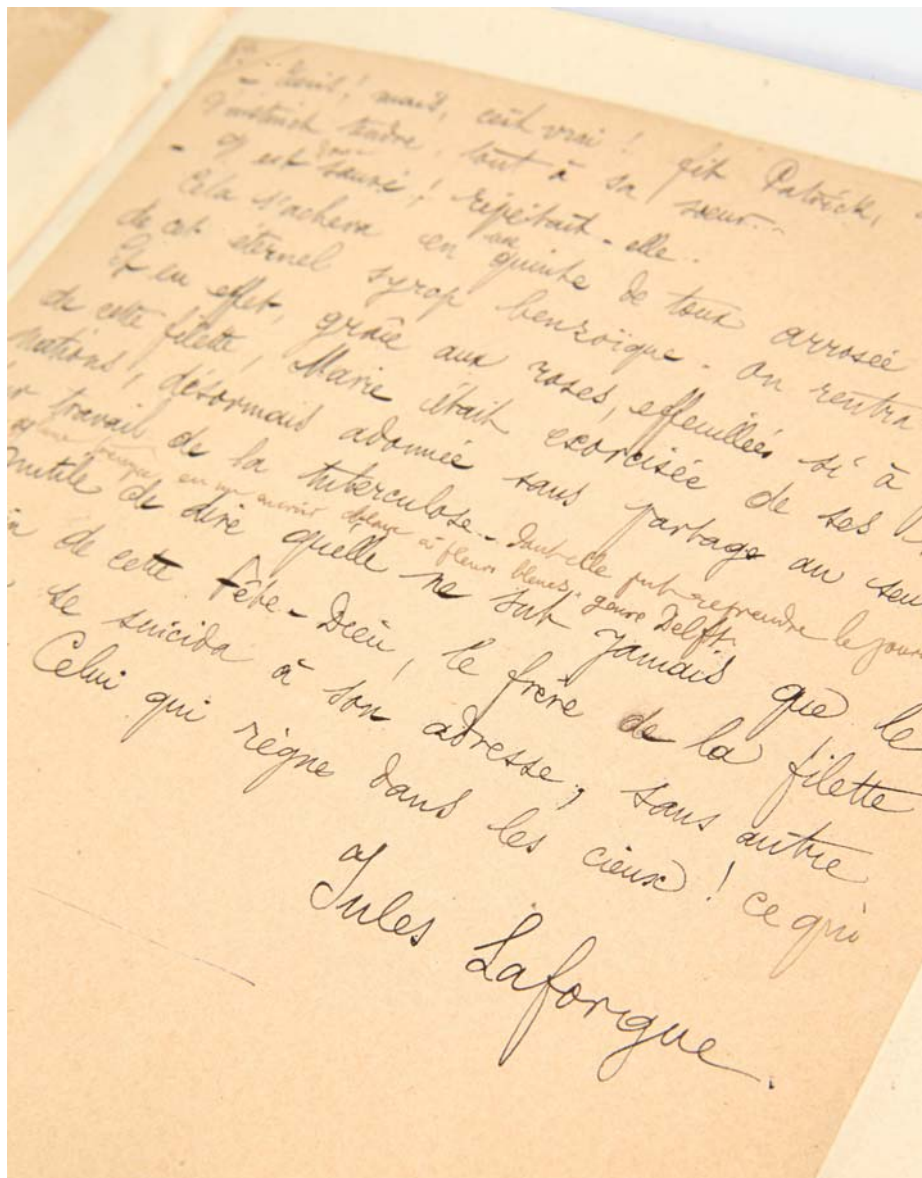 mais, c'est vrai ! fit Patrick,
d'instinct tendre, tout à sa sœur...
- Il est sauvé ! répétait-elle..
Cela s'acheva en une quinte de toux arrosée
de cet éternel syrop benzoïque. On rentra
Et en effet, grâce aux roses, effeuillées si à
de cette filette, Marie était exorcisée de ses
désormais adonnée sans partage au seul
travail de la tuberculose.. dont elle put reprendre le
en un à fleurs bleues, genre Delft.
Inutile de dire qu'elle ne sut jamais que le
de cette Fête-Dieu, le frère de la filette
se suicida à son adresse, sans autre
Celui qui règne dans les cieux ! ce qui
Jules Laforgue.